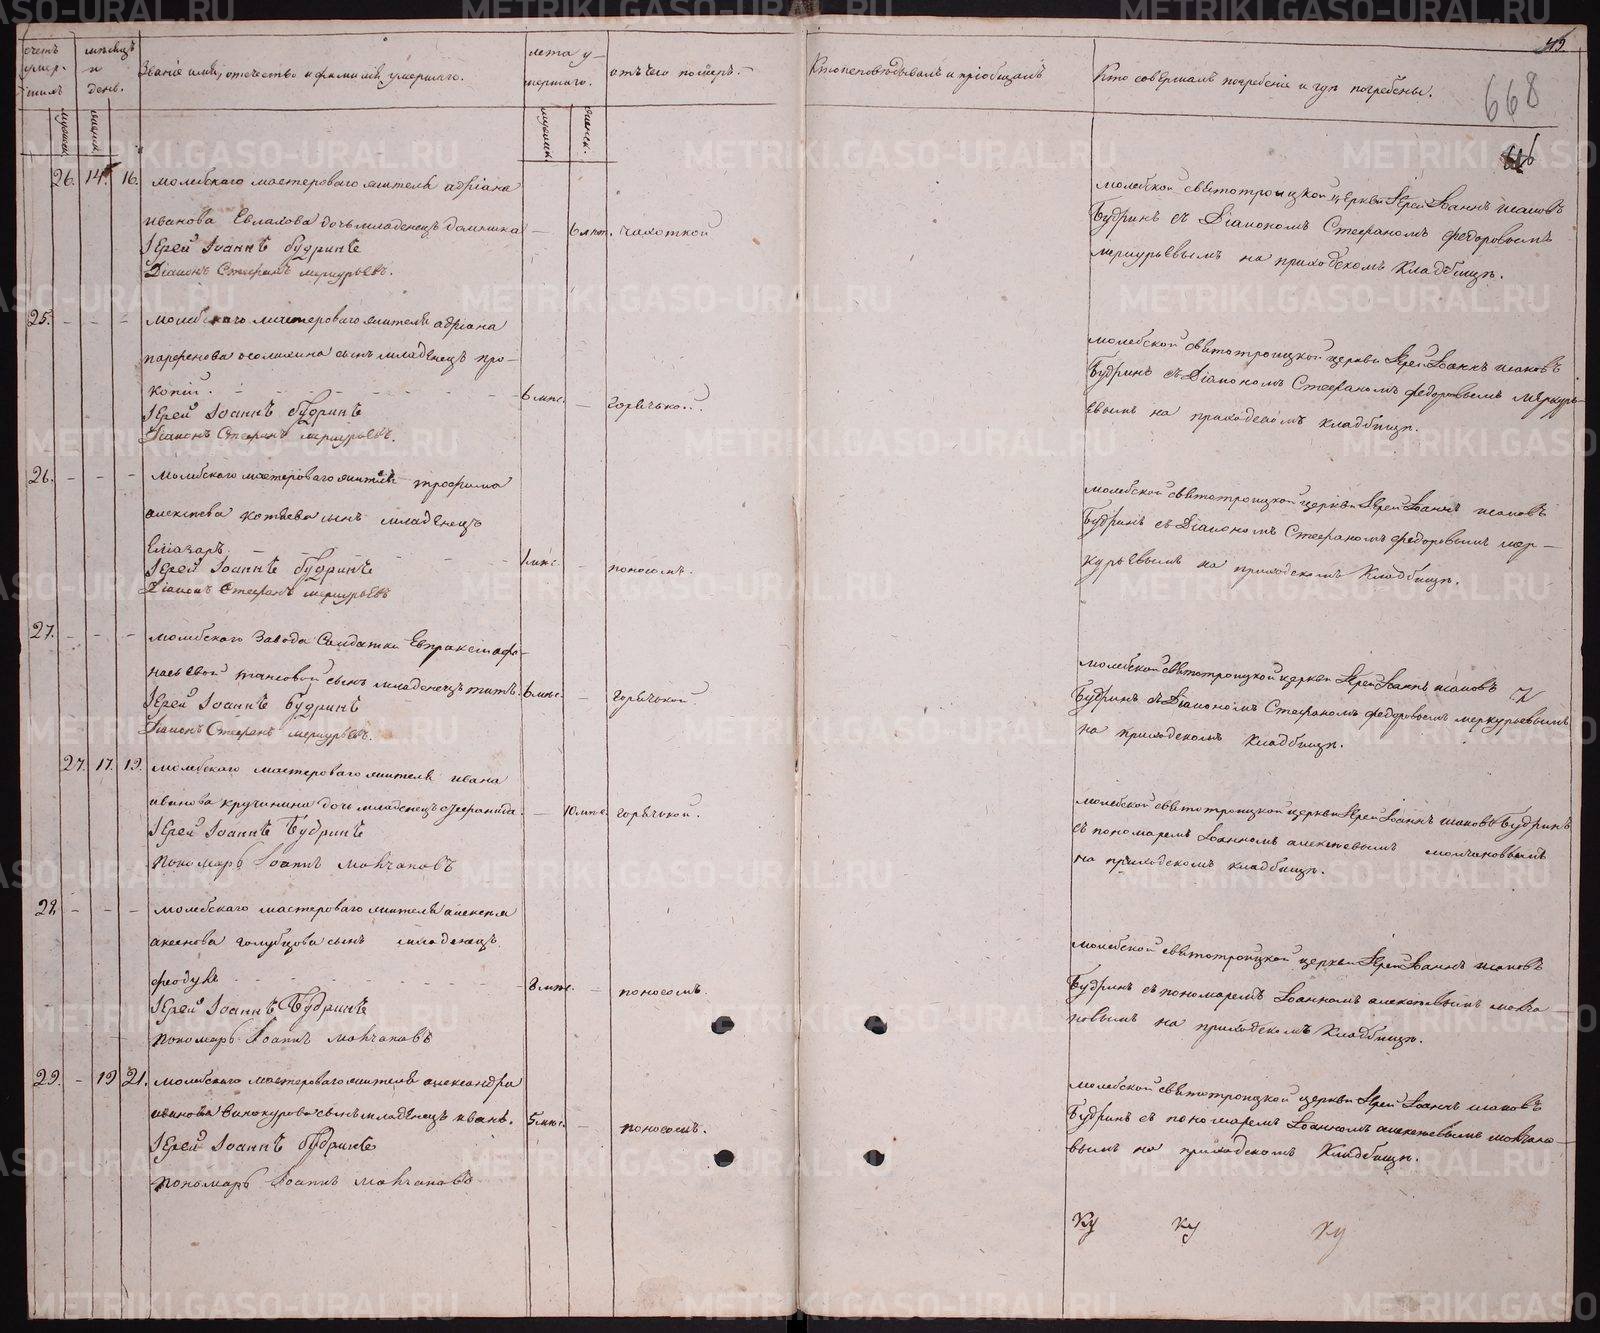 счетъ умер-шихъ
мѣсяцъ и день.
Званіе имя, отечество и фамилія умершаго.
лета у-мершаго.
отъ чего померъ.
Кто исповѣдывалъ и пріобщалъ
Кто совершалъ погребеніе и гдѣ погребены.
668
26. 14. 16. молебскаго мастероваго жителя адріана
иванова Евлахова дочь младенецъ домника — 6 лѣт. чахоткой
Іерей Іоаннъ Будринъ
Діаконъ Стефанъ меркурьевъ.
молебской святотроицкой церкви Іерей Іоаннъ
Будринъ съ Діакономъ Стефаномъ федоровымъ
меркурьевымъ на приходскомъ кладбищѣ.
25. — — — молебскаго мастероваго жителя адріана
парфенова сынъ младенецъ про-
копій. 6 мѣс. — горячкой.
Іерей Іоаннъ Будринъ
Діаконъ Стефанъ меркурьевъ.
молебской святотроицкой церкви Іерей Іоаннъ
Будринъ съ Діакономъ Стефаномъ федоровымъ меркурь-
евымъ на приходскомъ кладбищѣ.
26. — — — молебскаго мастероваго жителя трофима
алексѣева сынъ младенецъ
Еліазаръ. 1 мѣс. — поносомъ.
Іерей Іоаннъ Будринъ
Діаконъ Стефанъ меркурьевъ
молебской святотроицкой церкви Іерей Іоаннъ
Будринъ съ Діакономъ Стефаномъ федоровымъ мер-
курьевымъ на приходскомъ кладбищѣ.
27. — — — молебскаго завода Салдатки Евпраксіи афо-
насьевой сынъ младенецъ титъ. 6 мѣс. — горячькой
Іерей Іоаннъ Будринъ
Діаконъ Стефанъ меркурьевъ.
молебской святотроицкой церкви Іерей Іоаннъ
Будринъ съ Діакономъ Стефаномъ федоровымъ меркурьевымъ
на приходскомъ кладбищѣ.
27. 17. 19. молебскаго мастероваго жителя ивана
иванова кручинина дочь младенецъ — 10 мѣс. горячькой.
Іерей Іоаннъ Будринъ
Пономарь Іоаннъ молчановъ
молебской святотроицкой церкви Іерей Іоаннъ Будринъ
съ пономаремъ Іоанномъ алексѣевымъ молчановымъ
на приходскомъ кладбищѣ.
28. — — — молебскаго мастероваго жителя алексѣя
голубцова сынъ младенецъ
феодулъ 8 мѣс. — поносомъ.
Іерей Іоаннъ Будринъ
Пономарь Іоаннъ молчановъ
молебской святотроицкой церкви Іерей Іоаннъ
Будринъ съ пономаремъ Іоанномъ алексѣевымъ молча-
новымъ на приходскомъ кладбищѣ.
29. — 19 21. молебскаго мастероваго жителя александра
иванова винокурова сынъ младенецъ иванъ. 5 мѣс. — поносомъ.
Іерей Іоаннъ Будринъ
Пономарь Іоаннъ молчановъ
молебской святотроицкой церкви Іерей Іоаннъ
Будринъ съ пономаремъ Іоанномъ алексѣевымъ молчано-
вымъ на приходскомъ кладбищѣ.
METRIKI.GASO-URAL.RU